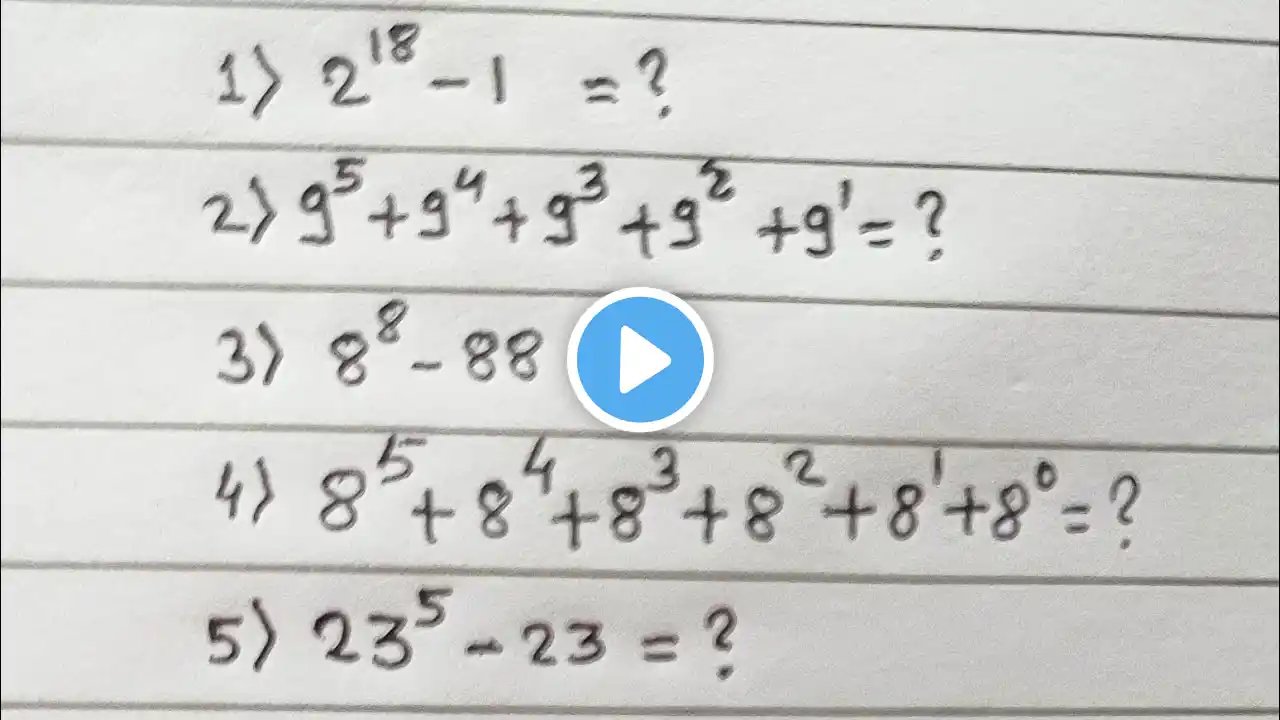 1) 2¹⁸ - 1 = ?
2) 9⁵ + 9⁴ + 9³ + 9² + 9¹ = ?
3) 8⁸ - 88
4) 8⁵ + 8⁴ + 8³ + 8² + 8¹ + 8⁰ = ?
5) 23⁵ - 23 = ?